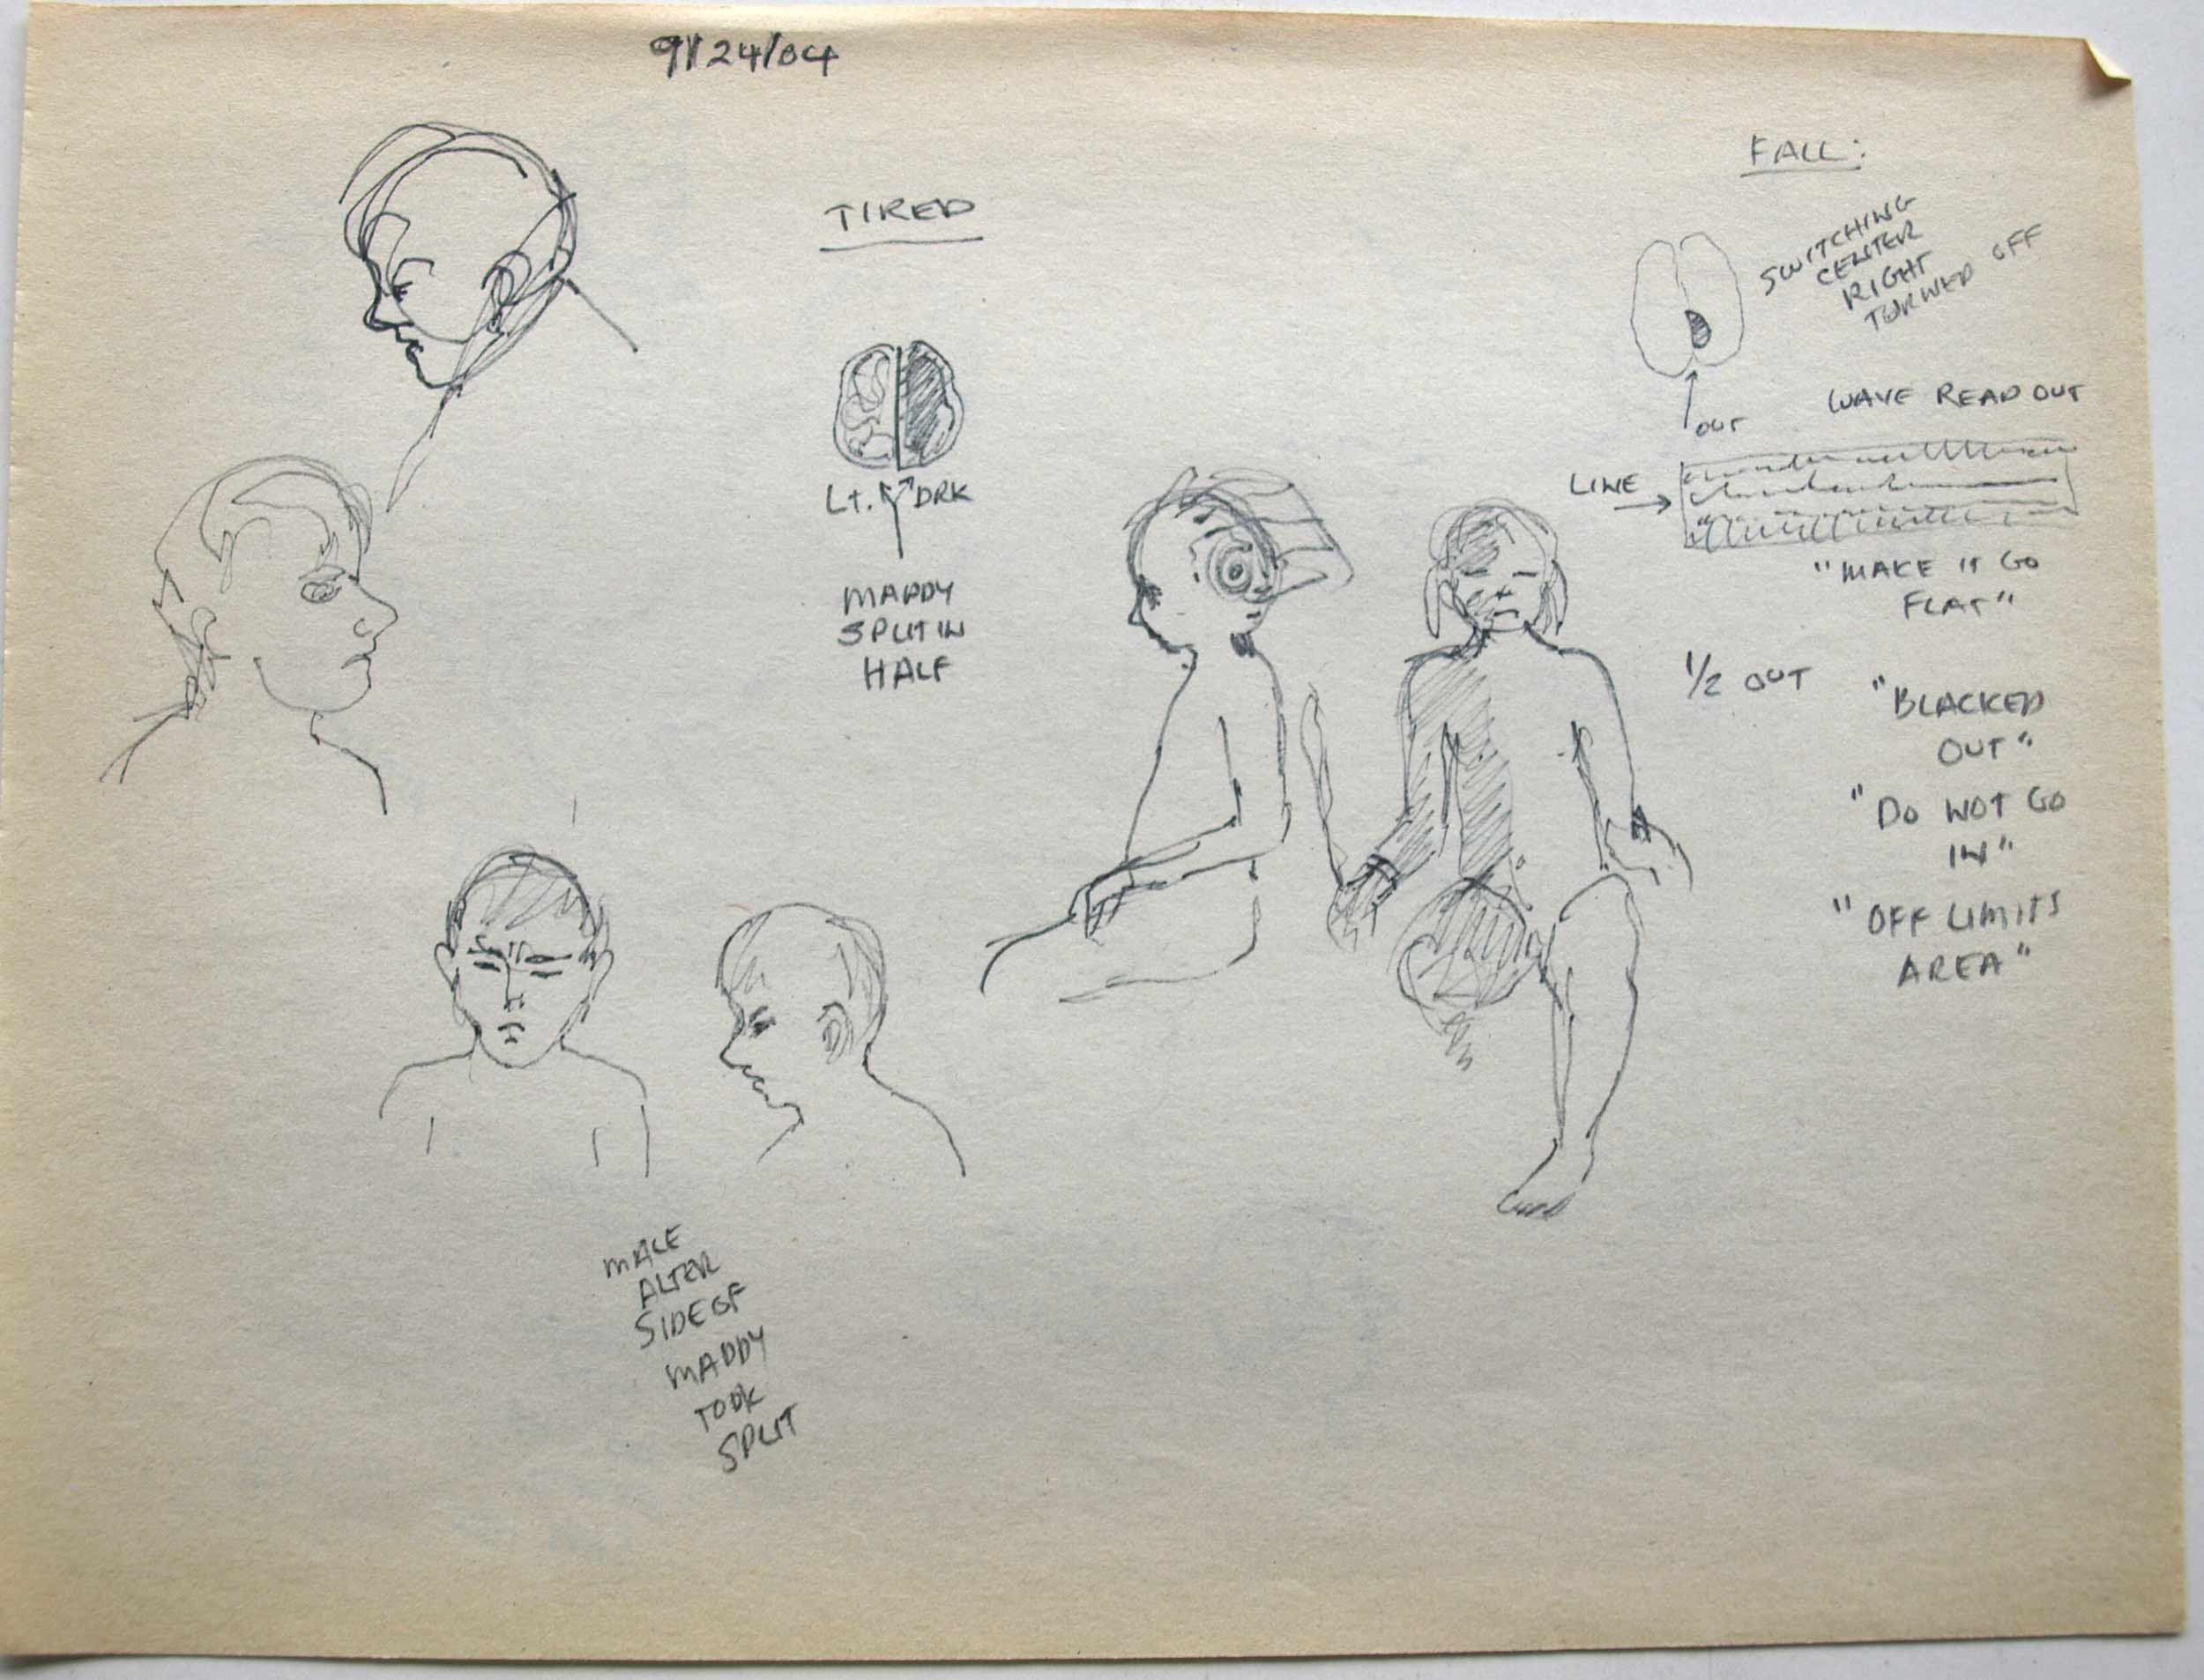 9/24/04
TIRED
Lt. DRK
MADDY
SPLIT IN
HALF
FALL:
SWITCHING
CENTER
RIGHT
TURNED OFF
OUT
WAVE READ OUT
LINE
"MAKE IT GO
FLAT"
1/2 OUT
"BLACKED
OUT"
"DO NOT GO
IN"
"OFF LIMITS
AREA"
MALE
ALTER
SIDE OF
MADDY
TOOK
SPLIT